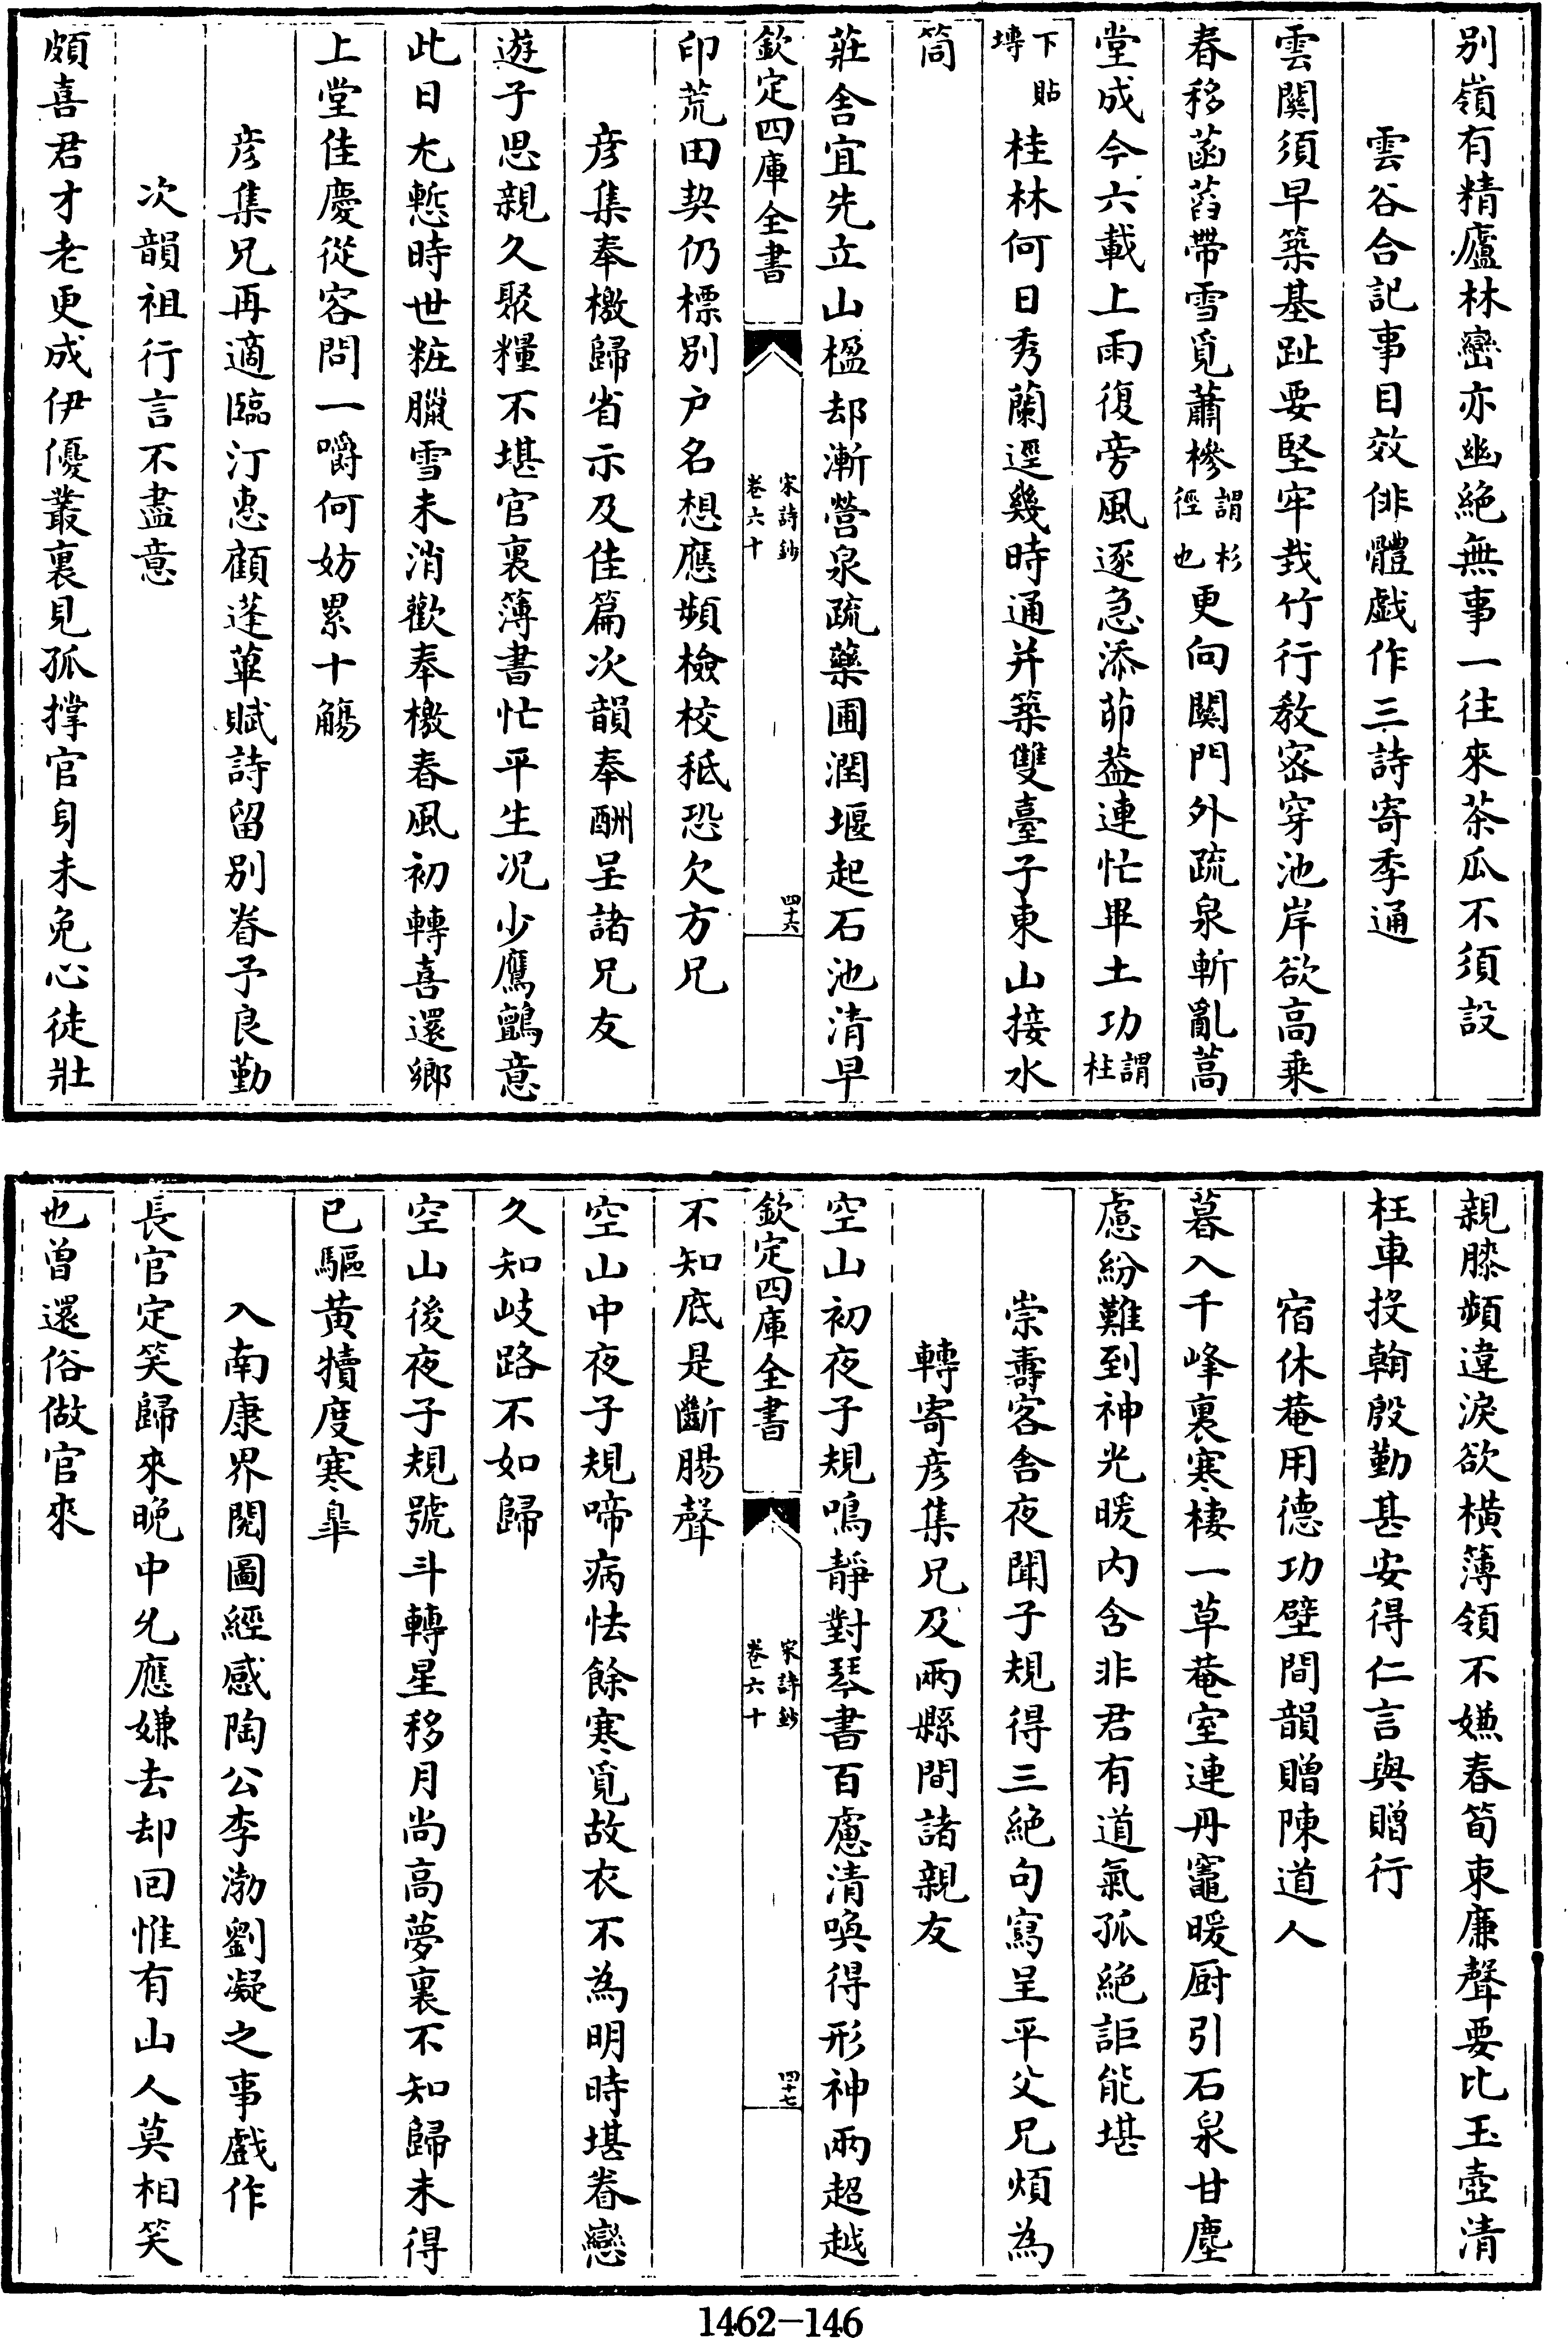 别嶺有精廬林巒亦幽絶無事一往來茶瓜不須設
雲谷合記事目效俳體戯作三詩寄季通
雲關須早築基趾要堅牢栽竹行行教宻穿池岸欲高乗
春移菡萏帶雪覓蕭椮謂杉徑也更向關門外疏泉斬亂蒿
堂成今六載上雨復旁風逐急添茆葢連忙畢土功謂柱
下貼塼桂林何日秀蘭逕幾時通并築雙臺子東山接水
筒
莊舎宜先立山楹却漸營泉疏藥圃潤堰起石池清早
欽定四庫全書
宋詩鈔
卷六十
四十六
印荒田契仍標别户名想應頻檢校秪恐欠方兄
彦集奉檄歸省示及佳篇次韻奉酬呈諸兄友
遊子思親久聚糧不堪官裏簿書忙平生况少鷹鸇意
此日尢慙時世粧臘雪未消歡奉檄春風初轉喜還鄉
上堂佳慶從容問一嚼何妨累十觴
彦集兄再適臨汀恵顧蓬蓽賦詩留别眷予良勤
次韻祖行言不盡意
頗喜君才老更成伊優叢裏見孤撑官身未免心徒壯
親膝頻違淚欲横薄領不嫌春筍束廉聲要比玉壺清
枉車投翰殷勤甚安得仁言與贈行
宿休菴用德功壁間韻贈陳道人
暮入千峰裏寒棲一草菴室連丹竈暖厨引石泉甘塵
慮紛難到神光暖内含非君有道氣孤絶詎能堪
崇壽客舎夜聞子規得三絶句寫呈平父兄煩為
轉寄彦集兄及兩縣間諸親友
空山初夜子規鳴靜對琴書百慮清喚得形神兩超越
欽定四庫全書
宋詩鈔
卷六十
四十七
不知底是斷腸聲
空山中夜子規啼病怯餘寒覓故衣不為明時堪眷戀
久知岐路不如歸
空山後夜子規號斗轉星移月尚高夢裏不知歸未得
已驅黄犢度寒臯
入南康界閲圖經感陶公李渤劉凝之事戲作
長官定笑歸來晚中允應嫌去却回惟有山人莫相笑
也曽還俗做官來
1462-146